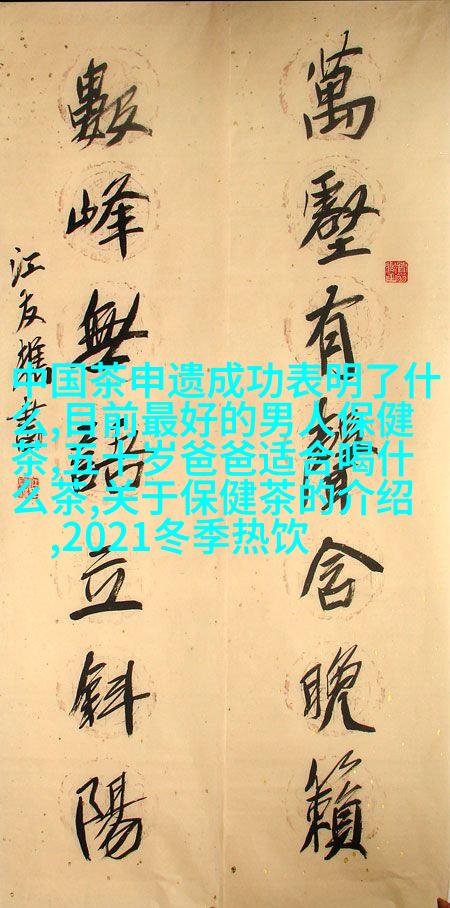 萬壑有聲含晚籟
數峰無語立斜陽
江友樵書
中国茶申遗成功表明了什
么,目前最好的男人保健
茶,五十岁爸爸适合喝什
么茶,关于保健茶的介绍
,2021冬季热饮